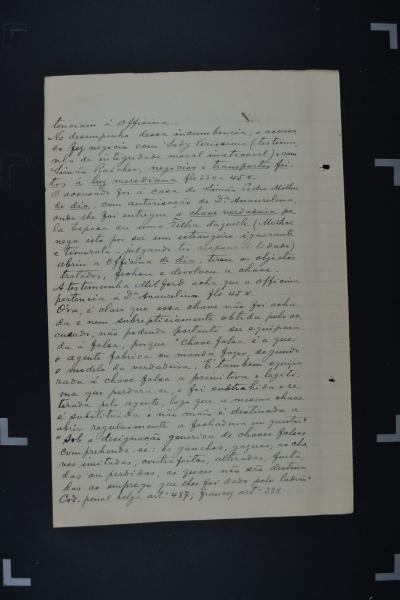 tenciam á Officina.
No desempenho dessa incumbencia, o accusa
do fez negocio com Saby Verissimo (testemu
nha de integridade moral inatacavel) e com
Simão Rascher, negocios e transportes fei
tos á luz meridiana fls 23 v. e 45 v.
O accusado foi á casa de Simão Pedro Mother
de dia, com autorisação de Dª Anaurelina,
onde lhe foi entregue a chave verdadeira pe
la esposa ou uma filha daquelle, (Mother
nega isto por ser um estrangeiro ignorante
e timorato julgando ter responsabilidade)
abriu a Officina de dia, tirou os objectos
tratados, fechou e devolveu a chave.
A testemunha Milford acha que a officina
pertencia a Dª Anaurelina fls 45 v.
Ora, é claro que essa chave não foi acha
da e nem subrepticiamente obtida pelo ac
cusado, não podendo portanto ser equipara
da á falsa, porque "Chave falsa é a que
o agente fabrica ou manda fazer, segundo
o modelo da verdadeira. É tambem equipa
rada á chave falsa a primitiva e legiti
ma que perdera-se, e foi subtrahida e re
tirada pelo agente, logo que a mesma chave
é substituida e não mais é destinada a
abrir regularmente a fechadura em questão"
"Sob a designação generica de chaves falsas
comprehende-se: os ganchos, gazuas, as cha
ves imitadas, contrafeitas, alteradas, furta
das ou perdidas, as quaes não são destina
das ao emprego que lhes foi dado pelo ladrão"
Cod. penal belga artº 487; francez artº 398